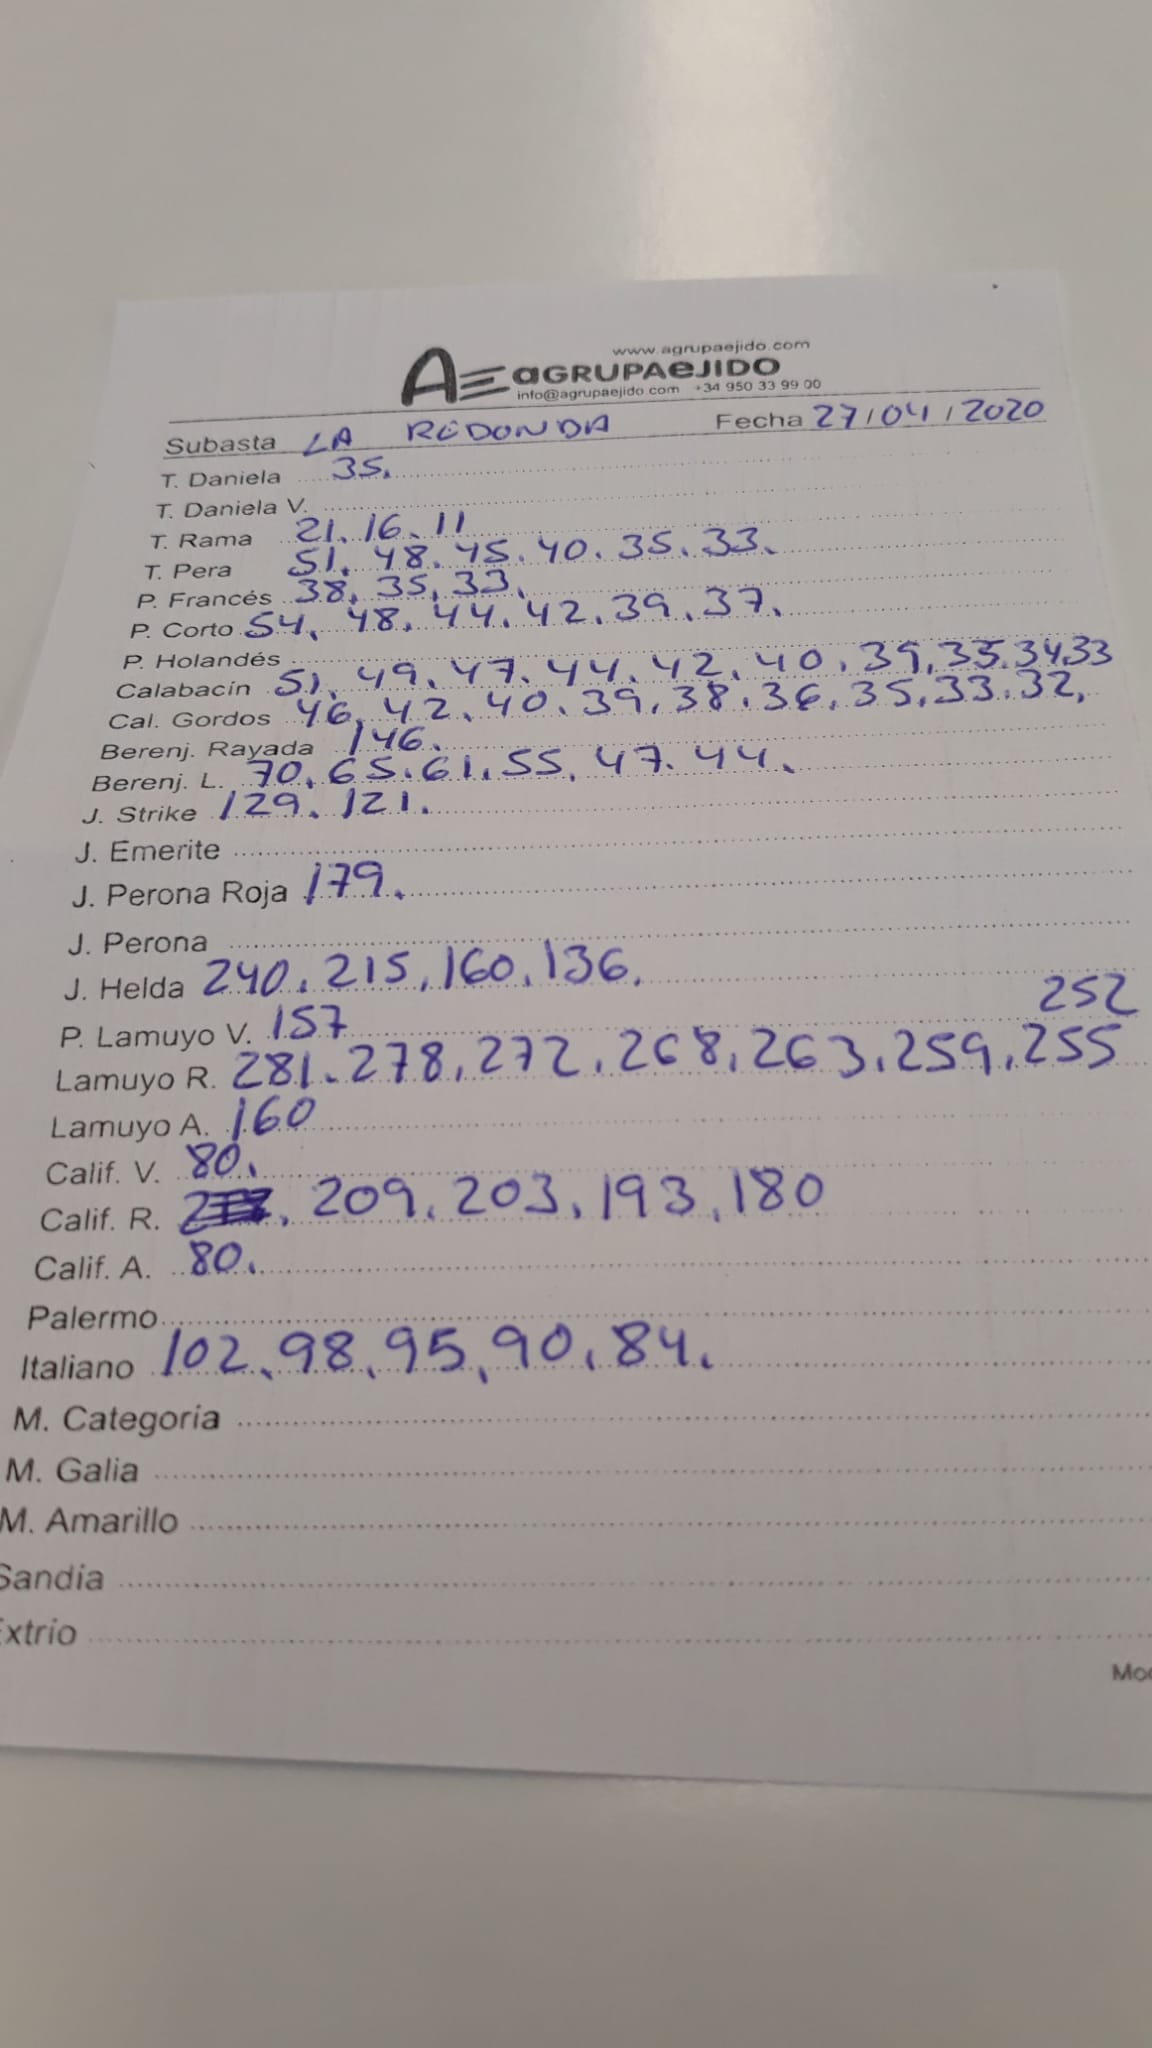 www.agrupaejido.com
AE aGRUPAeJIDO
info@agrupaejido.com +34 950 33 99 00
Subasta LA REDONDA Fecha 27/04/2020
T. Daniela 35.
T. Daniela V.
T. Rama 21. 16. 11
T. Pera 51. 48. 45. 40. 35. 33.
P. Francés 38, 35, 33.
P. Corto 54. 48. 44. 42. 39. 37.
P. Holandés
Calabacín 51. 49. 47. 44. 42. 40. 39. 35. 34. 33
Cal. Gordos 46, 42. 40. 39, 38. 36, 35. 33. 32.
Berenj. Rayada 146.
Berenj. L. 70. 65. 61. 55. 47. 44.
J. Strike 129. 121.
J. Emerite
J. Perona Roja 179.
J. Perona
J. Helda 240. 215, 160, 136.
P. Lamuyo V. 157
252
Lamuyo R. 281. 278, 272, 268, 263, 259, 255
Lamuyo A. 160
Calif. V. 80.
Calif. R. 209. 203, 193, 180
Calif. A. 80.
Palermo
Italiano 102. 98, 95, 90, 84.
M. Categoria
M. Galia
M. Amarillo
Sandia
Extrio